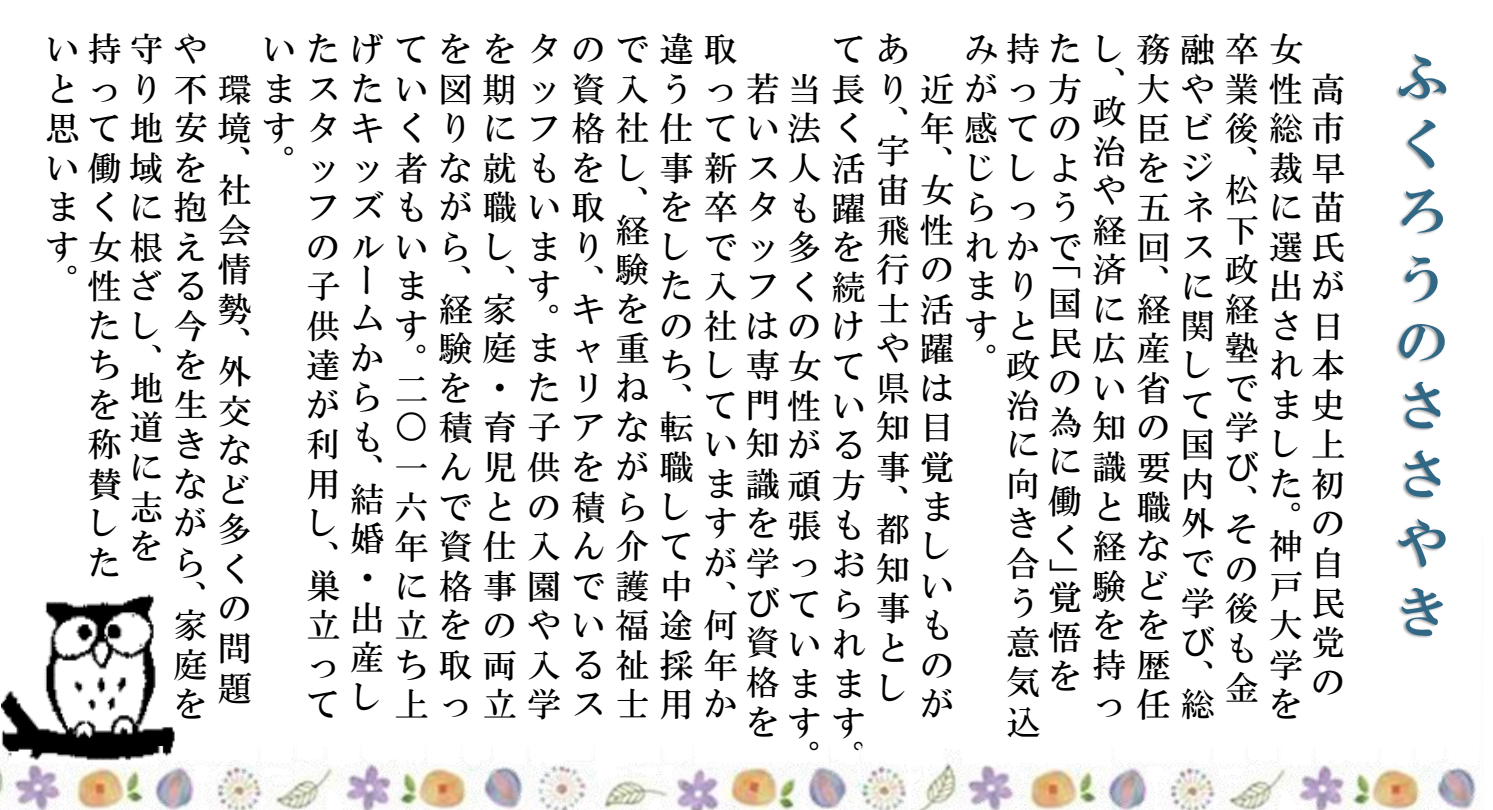 ふくろうのささやき
高市早苗氏が日本史上初の自民党の
女性総裁に選出されました。神戸大学を
卒業後、松下政経塾で学び、その後も金
融やビジネスに関して国内外で学び、総
務大臣を五回、経産省の要職などを歴任
し、政治や経済に広い知識と経験を持っ
た方のようで「国民の為に働く」覚悟を
持ってしっかりと政治に向き合う意気込
みが感じられます。
近年、女性の活躍は目覚ましいものが
あり、宇宙飛行士や県知事、都知事とし
て長く活躍を続けている方もおられます。
当法人も多くの女性が頑張っています。
若いスタッフは専門知識を学び資格を
取って新卒で入社していますが、何年か
違う仕事をしたのち、転職して中途採用
で入社し、経験を重ねながら介護福祉士
の資格を取り、キャリアを積んでいるス
タッフもいます。また子供の入園や入学
を期に就職し、家庭・育児と仕事の両立
を図りながら、経験を積んで資格を取っ
ていく者もいます。二〇一六年に立ち上
げたキッズルームからも、結婚・出産し
たスタッフの子供達が利用し、巣立って
います。
環境、社会情勢、外交など多くの問題
や不安を抱える今を生きながら、家庭を
守り地域に根ざし、地道に志を
持って働く女性たちを称賛した
いと思います。